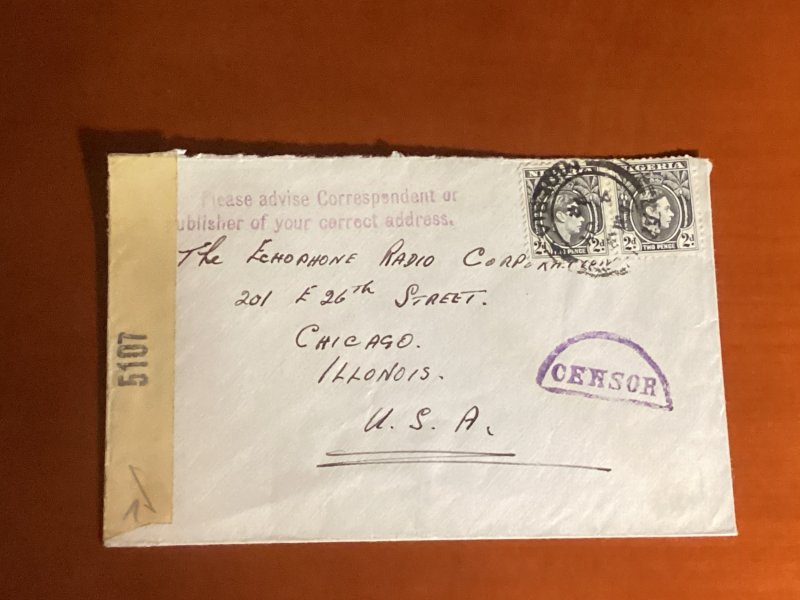 Please advise Correspondent or
ublisher of your correct address.
NIGERIA
2d 2d
NIGERIA
2d TWO PENCE 2d
The Echophone Radio Corporation
201 E 26th Street.
Chicago.
Illonois.
U. S. A.
CENSOR
5107